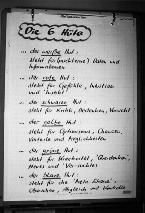 Die 6 Hüte
... der weiße Hut :
steht für (nachweise) Daten und
Informationen
... der rote Hut :
steht für Gefühle, Intuition
und Instinkt
... der schwarze Hut :
steht für Kritik, Bedenken, Vorsicht
... der gelbe Hut :
steht für Optimismus, Chancen,
Vorteile und Möglichkeiten
... der grüne Hut :
steht für Kreativität, "Querdenken",
Neues und Verrücktes
... der blaue Hut :
steht für die "Meta-Ebene",
Überblick, Abgleich und Kontrolle